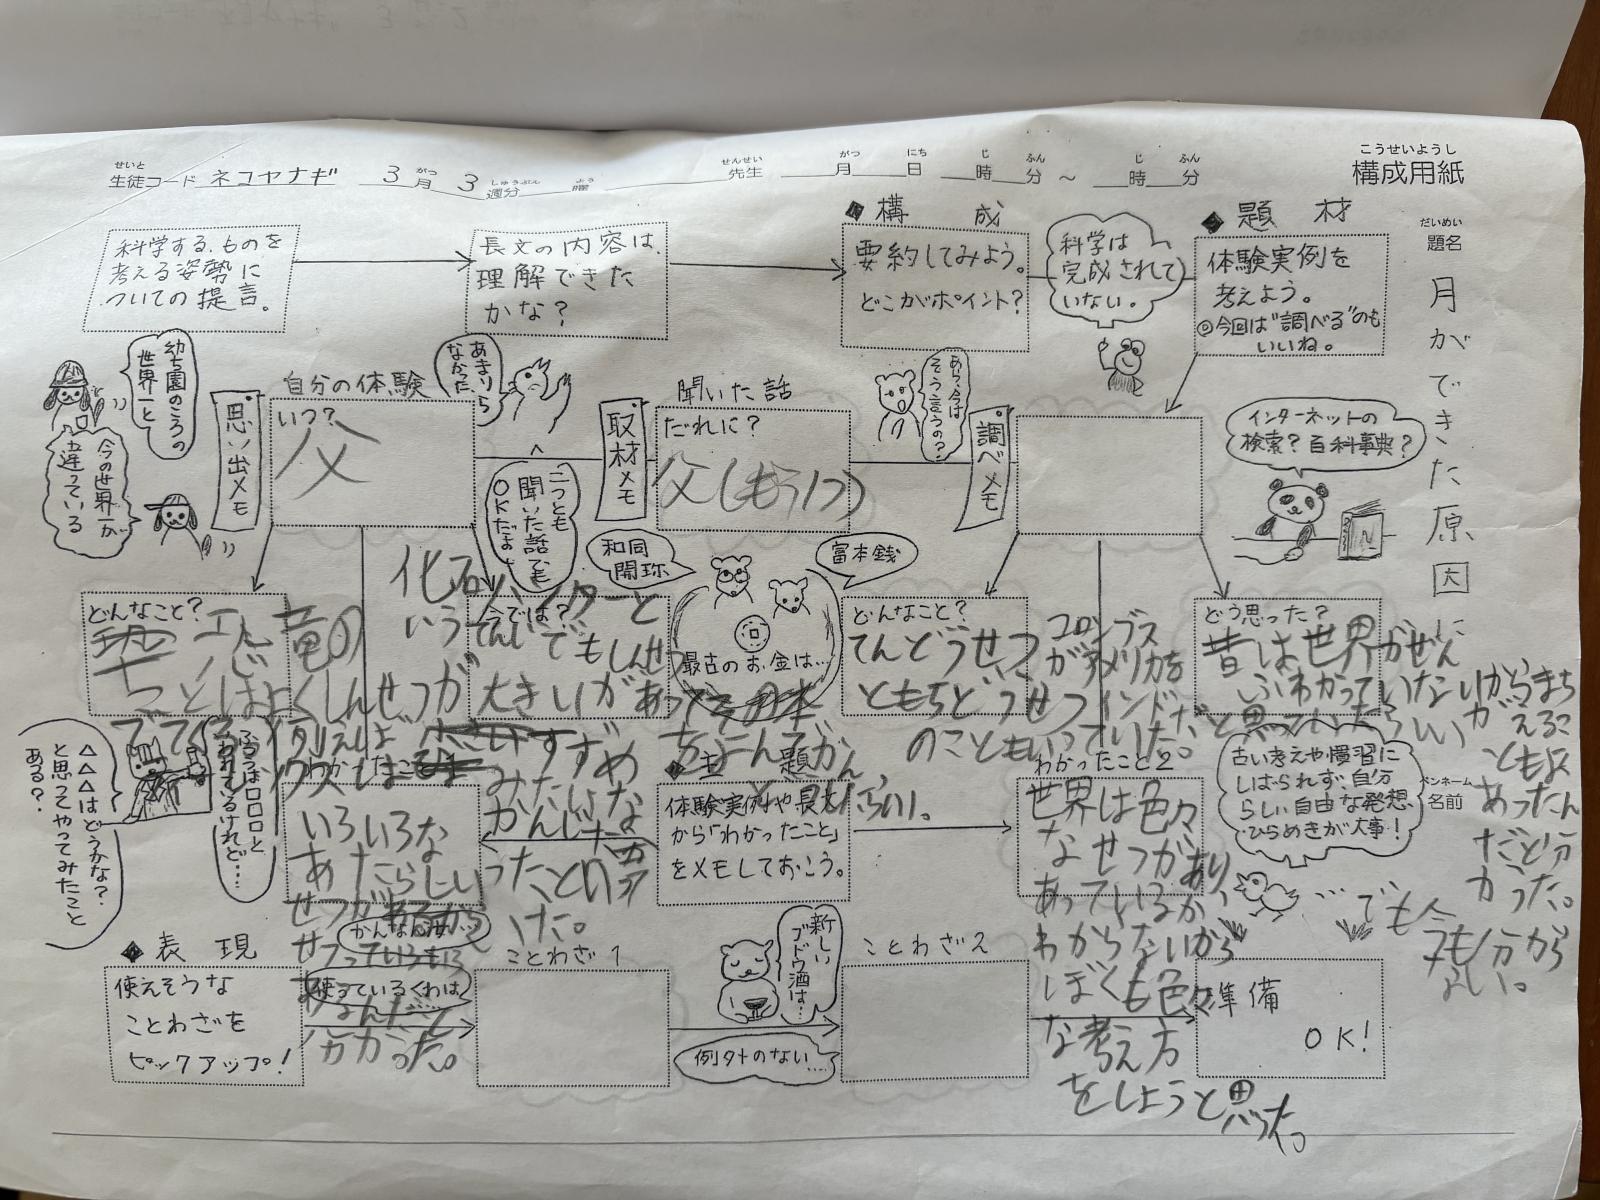 こうせいようし
構成用紙
せいと
生徒コード ネコヤナギ 3月 3週分 曜
がつ しゅうぶん よう
せんせい がつ にち じ ふん じ ふん
先生 月 日 時 分 ～ 時 分
だいめい
題名
月ができた原因に
ペンネーム
名前
科学する、ものを
考える姿勢に
ついての提言。
長文の内容は、
理解できた
かな？
◆構 成
要約してみよう。
どこがポイント？
科学は
完成されて
いない。
◆題 材
体験実例を
考えよう。
◎今回は“調べる”のも
いいね。
幼ち園のころの
世界一と
今の世界一が
違っている
思い出メモ
自分の体験
いつ？
父
あきりら
なかだ、
二つとも
聞いた話でも
OKだよ
取材メモ
聞いた話
だれに？
父(もう1つ)
あら、今は
そう言うの？
調べメモ
インターネットの
検索？百科事典？
和同
開珎
富本銭
最古のお金は…
どんなこと？
竜の
ことはよくしんせつが
でてくる
今では？
化石ハンターと
いう
てんいでもしんせつ
大きいがあって
すずめ
みたいな
かんじだ
ったと
いた。
どんなこと？
てんどうせつ
ともちどうせつ
のこともいっていた。
コロンブス
がアメリカを
インドだ
と思っていたらしい
どう思った？
昔は世界がぜん
ぶわかっていないからまち
がえるこ
ともよく
あったん
だと分
かった。
でも今
今も分から
ない。
古い考えや慣習に
しばられず、自分
らしい自由な発想、
ひらめきが大事！
△△△はどうかな？
と思ってやってみたこと
ある？
ふつうは□□□と
言われているけれど…
わかったこと1
いろいろな
あたらしい
せつがあるから
分かった。
◆主 題
体験実例や長文
から「わかったこと」
をメモしておこう。
わかったこと2
世界は色々
なせつがあり、
あっているか
わからないから
ぼくも色々
な考え方
をしようと思った。
◆表 現
使えそうな
ことわざを
ピックアップ！
かんなん
使っているくわは
ことわざ1
新しい
ブドウ酒は…
例外のない……
ことわざ2
準備
OK！